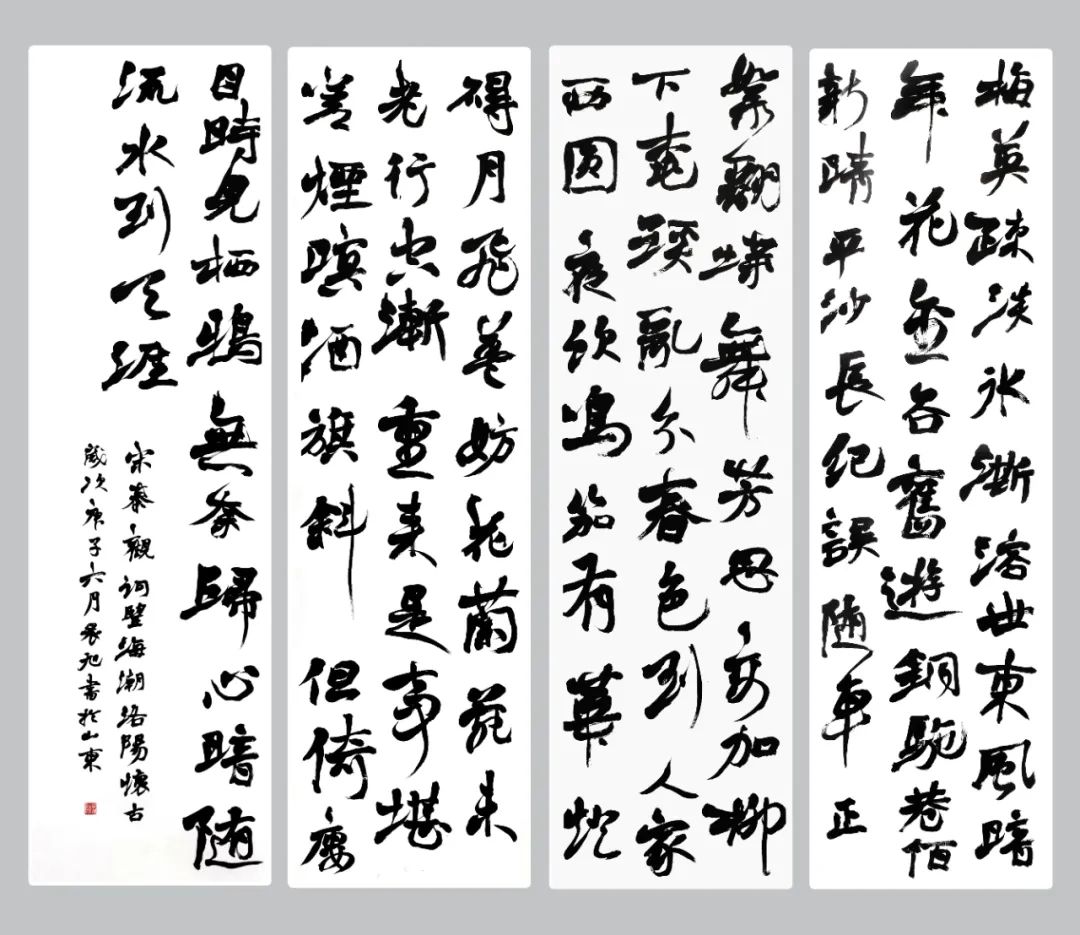 梅英疎淡冰澌溶世東風暗
年花金谷舊遊銅駝巷陌
新晴平沙長紀誤随車正
絮翻蝶舞芳思交加柳
下桃蹊亂分春色到人家
西園夜飲鳴笳有華燈
碍月飛盖妨花蘭苑未
老行空漸重来是事堪
嗟煙暝酒旗斜但倚樓
目時見栖鴉無奈歸心暗随
流水到天涯
宋秦觀詞望海潮洛陽懷古
歲次庚子六月晨旭書於山東